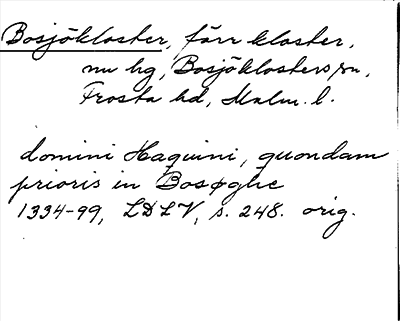 Bosjökloster, förr kloster,
nu hg, Bosjöklosters sn,
Frosta hd, Malm. l.
domini Haquini, quondam
prioris in Bosøghe
1334-99, LDLV, s. 248. orig.